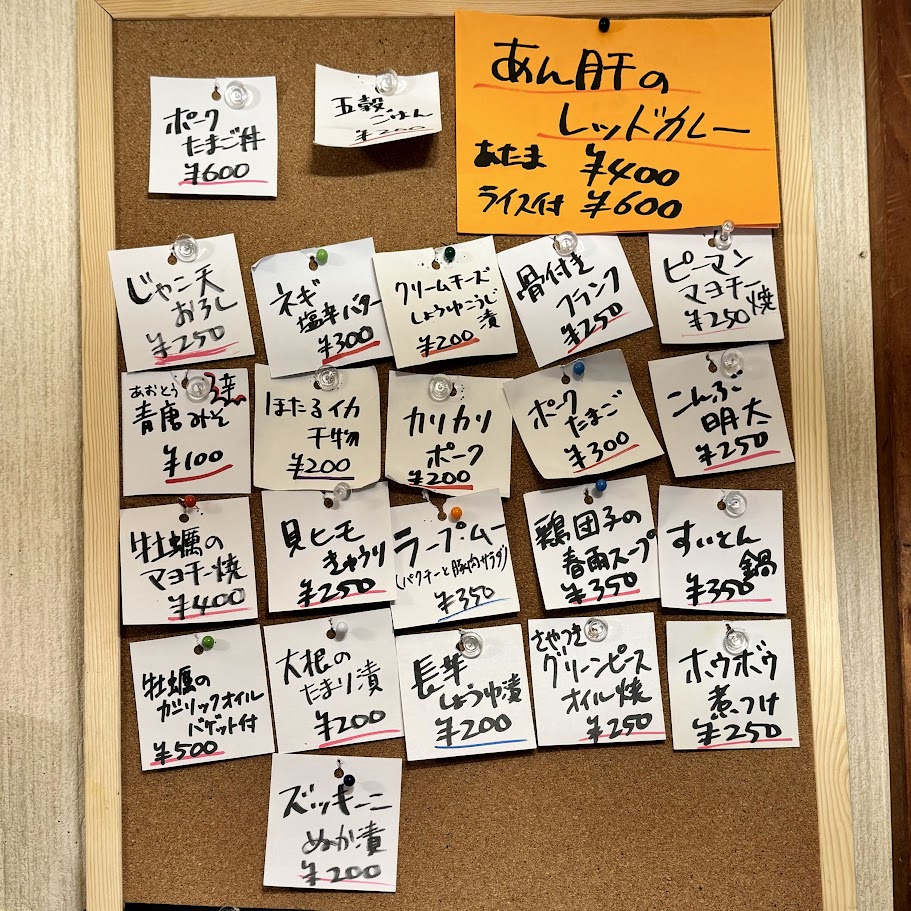 ポーク
たまご丼
¥600
五穀
ごはん
¥200
あん肝の
レッドカレー
あたま ¥400
ライス付 ¥600
じゃこ天
おろし
¥250
ネギ
塩辛バター
¥300
クリームチーズ
しょうゆこうじ
漬
¥200
骨付き
フランク
¥250
ピーマン
マヨチー
焼
¥250
あおとう
青唐みそ
辛
¥100
ほたるイカ
干物
¥200
カリカリ
ポーク
¥200
ポーク
たまご
¥300
こんぶ
明太
¥250
牡蠣の
マヨチー焼
¥400
貝ヒモ
きゅうり
¥250
ラープ・ムー
(パクチーと豚肉サラダ)
¥350
鶏団子の
春雨スープ
¥350
すいとん
鍋
¥350
牡蠣の
ガーリックオイル
バゲット付
¥500
大根の
たまり漬
¥200
長芋
しょうゆ漬
¥200
さやつき
グリーンピース
オイル焼
¥250
ホウボウ
煮つけ
¥250
ズッキーニ
ぬか漬
¥200